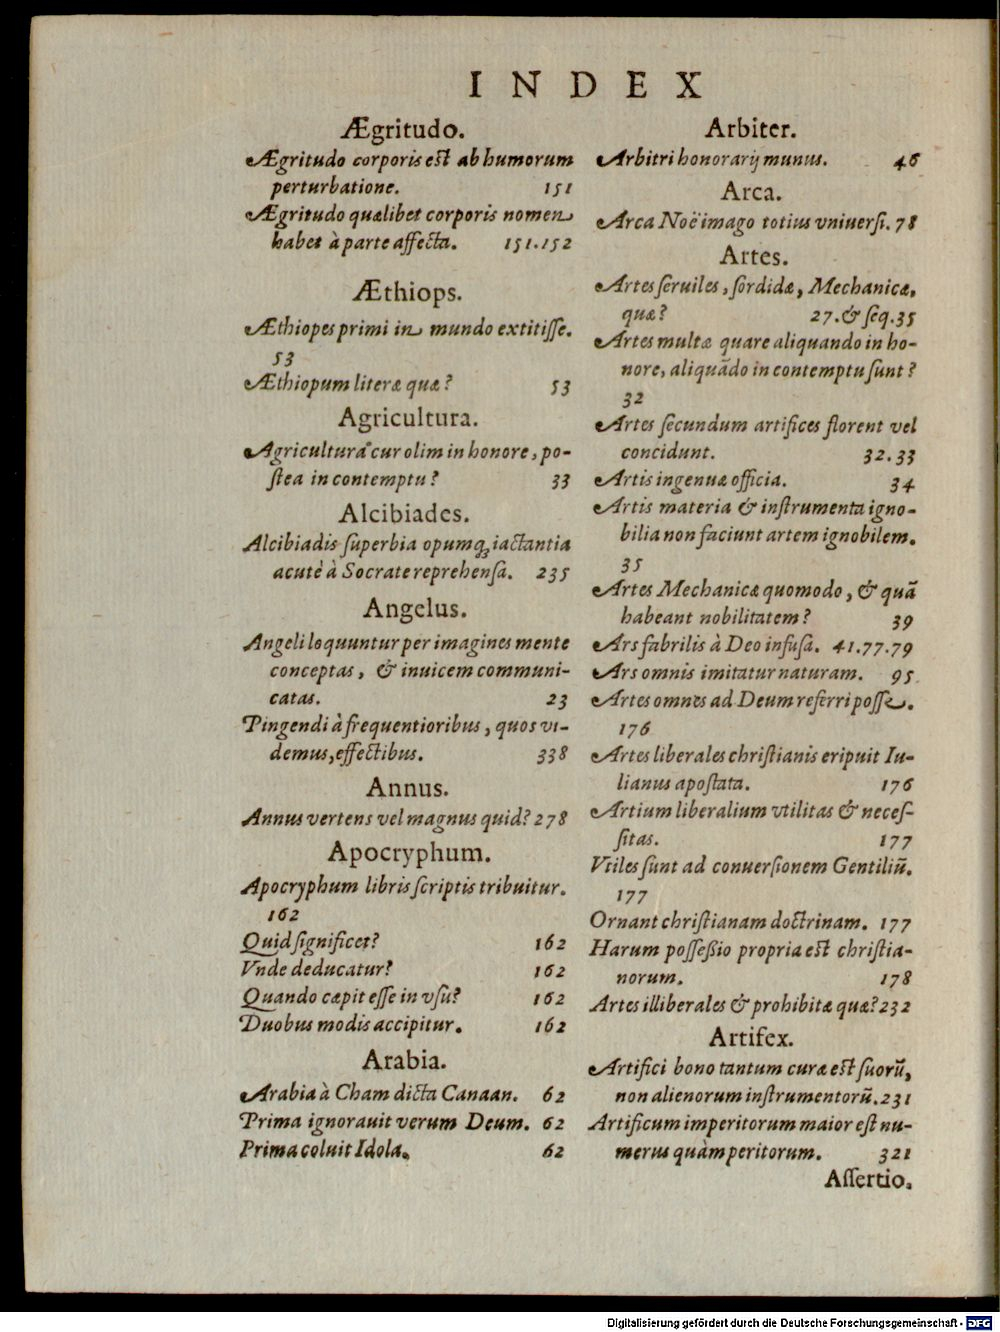 INDEX
Ægritudo.
Ægritudo corporis est ab humorum
perturbatione. 151
Ægritudo quælibet corporis nomen
habet à parte affecta. 151.152
Æthiops.
Æthiopes primi in mundo extitisse.
53
Æthiopum literæ quæ? 53
Agricultura.
Agricultura cur olim in honore, po-
stea in contemptu? 33
Alcibiades.
Alcibiadis superbia opumq́; iactantia
acutè à Socrate reprehensa. 235
Angelus.
Angeli loquuntur per imagines mente
conceptas, & inuicem communi-
catas. 23
Pingendi à frequentioribus, quos vi-
demus, effectibus. 338
Annus.
Annus vertens vel magnus quid? 278
Apocryphum.
Apocryphum libris scriptis tribuitur.
162
Quid significet? 162
Vnde deducatur? 162
Quando cæpit esse in vsu? 162
Duobus modis accipitur. 162
Arabia.
Arabia à Cham dicta Canaan. 62
Prima ignorauit verum Deum. 62
Prima coluit Idola. 62
Arbiter.
Arbitri honorarij munus. 46
Arca.
Arca Noë imago totius vniuersi. 78
Artes.
Artes seruiles, sordidæ, Mechanicæ,
quæ? 27. & seq. 35
Artes multæ quare aliquando in ho-
nore, aliquãdo in contemptu sunt?
32
Artes secundum artifices florent vel
concidunt. 32.33
Artis ingenuæ officia. 34
Artis materia & instrumenta igno-
bilia non faciunt artem ignobilem.
35
Artes Mechanicæ quomodo, & quã
habeant nobilitatem? 39
Ars fabrilis à Deo infusa. 41.77.79
Ars omnis imitatur naturam. 95
Artes omnes ad Deum referri posse.
176
Artes liberales christianis eripuit Iu-
lianus apostata. 176
Artium liberalium vtilitas & neces-
sitas. 177
Vtiles sunt ad conuersionem Gentiliũ.
177
Ornant christianam doctrinam. 177
Harum possessio propria est christia-
norum. 178
Artes illiberales & prohibitæ quæ? 232
Artifex.
Artifici bono tantum curæ est suorũ,
non alienorum instrumentorũ. 231
Artificum imperitorum maior est nu-
merus quàm peritorum. 321
Assertio.
Digitalisierung gefördert durch die Deutsche Forschungsgemeinschaft - DFG